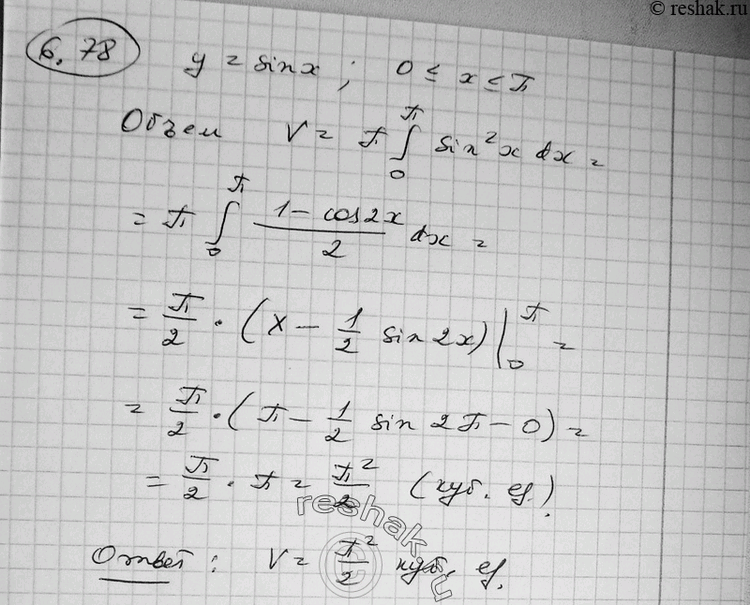 © reshak.ru
6.78 y = sin x ; 0 ≤ x ≤ π
Объем V = π ∫₀^π sin²x dx =
= π ∫₀^π (1 - cos2x)/2 dx =
= π/2 · (x - 1/2 sin 2x) |₀^π =
= π/2 · (π - 1/2 sin 2π - 0) =
= π/2 · π = π²/2 (куб. ед.)
reshak.ru
©
Ответ: V = π²/2 куб. ед.